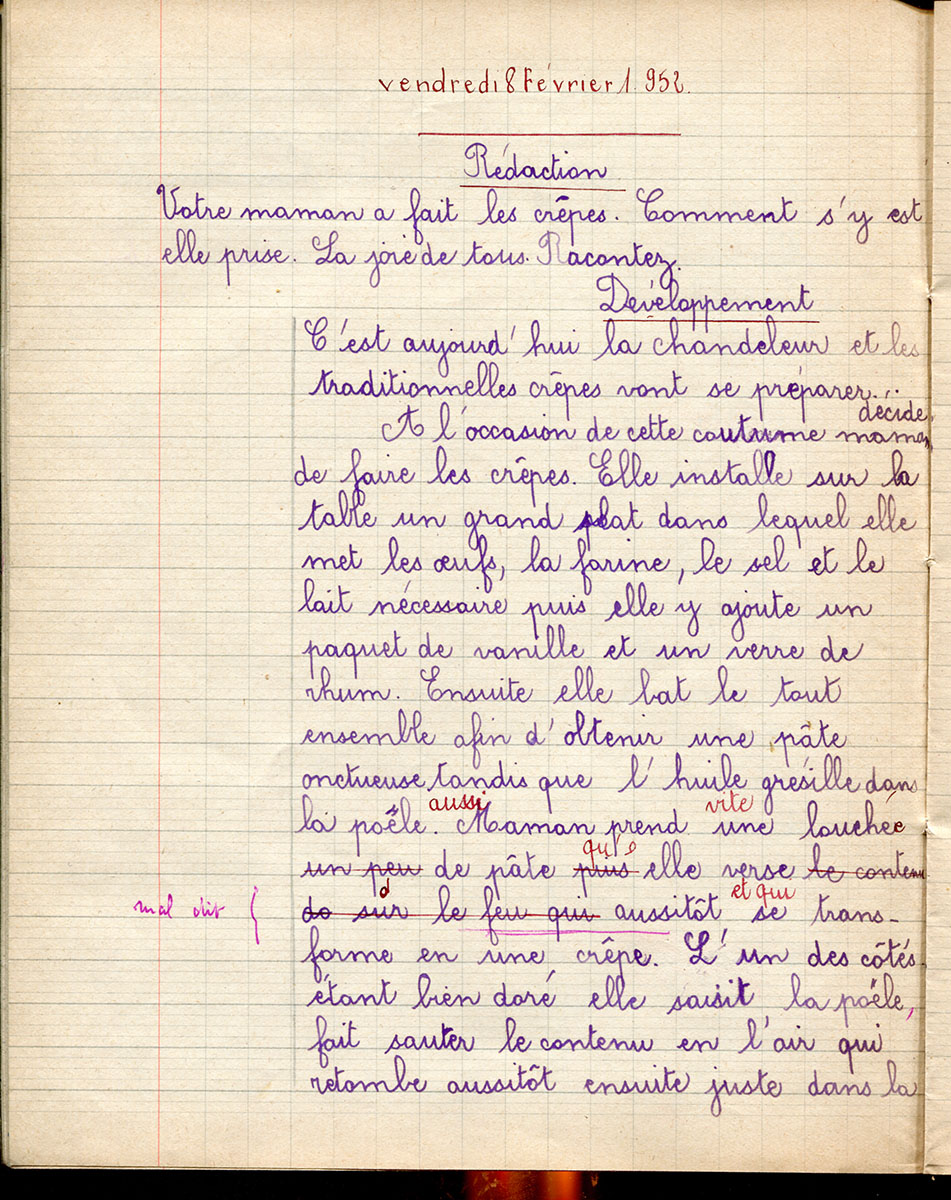 vendredi 8 Février 1952.
Rédaction
Votre maman a fait les crêpes. Comment s'y est
elle prise. La joie de tous. Racontez.
Développement
C'est aujourd'hui la chandeleur et les
traditionnelles crêpes vont se préparer...
décide
A l'occasion de cette coutume maman
de faire les crêpes. Elle installe sur la
table un grand plat dans lequel elle
met les œufs, la farine, le sel et le
lait nécessaire puis elle y ajoute un
paquet de vanille et un verre de
rhum. Ensuite elle bat le tout
ensemble afin d'obtenir une pâte
onctueuse, tandis que l'huile grésille dans
aussi vite
la poêle. Maman prend une louchée
qu'
un peu de pâte puis elle verse le contenu
et qui
do sur le feu qui aussitôt se trans-
mal dit
forme en une crêpe. L'un des côtés
étant bien doré elle saisit la poêle,
fait sauter le contenu en l'air qui
retombe aussitôt ensuite juste dans la